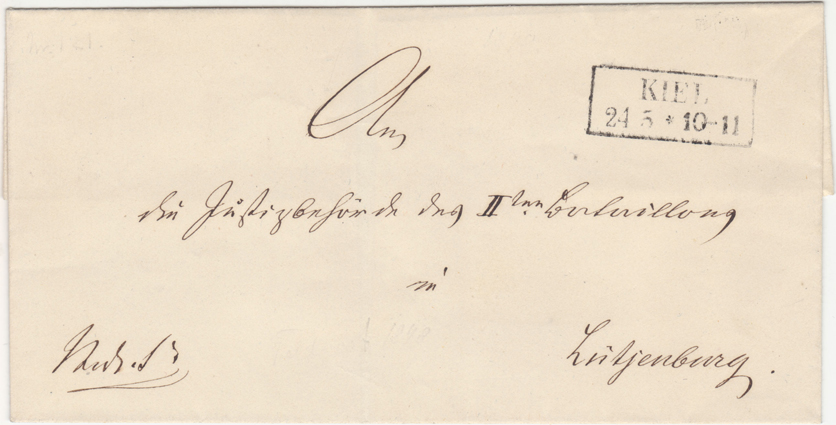 KIEL
24 5 * 10-11
An
die Justizbehörde des IIten Bataillons
in
Lütjenburg.